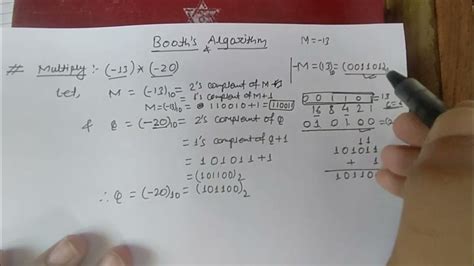 Booth's Algorithm
# Multiply :- (-13) * (-20)
M = -13
Let, M = (-13)10 = 2's complent of M
= 1's complent of M+1
-M = (13) = (001101)2
M = (-13)10 = 110010+1 = 110011
0 0 1 1 0 1 = 13
16 8 4 2 1
& Q = (-20)10 = 2's complent of Q
0 1 0 1 0 0
= 1's complent of Q+1
= 101011+1
101011
+ 1
= (101100)2
101100
∴ Q = (-20)10 = (101100)2